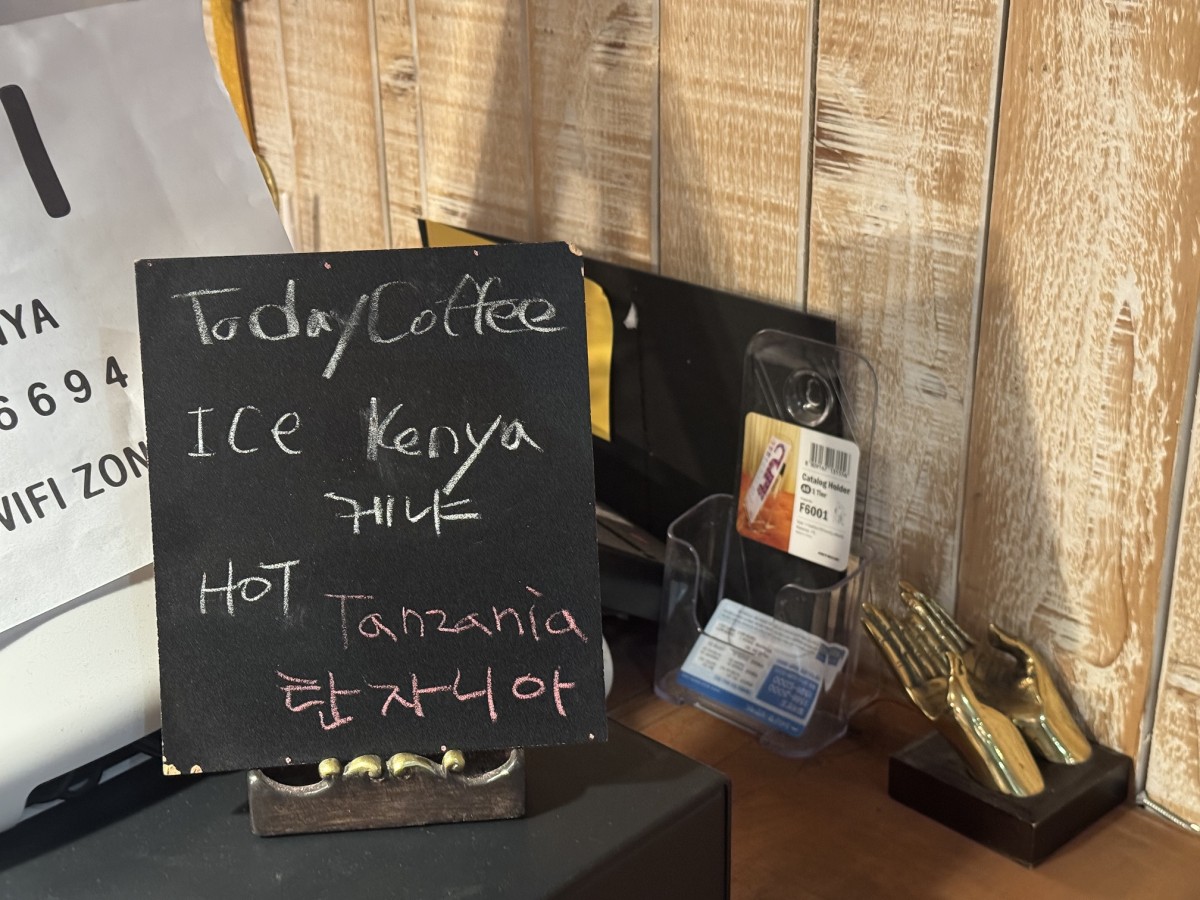 6694
WIFI ZON
Today Coffee
ICe Kenya
케냐
HoT Tanzania
탄자니아
Catalog Holder
1 Tier
F6001